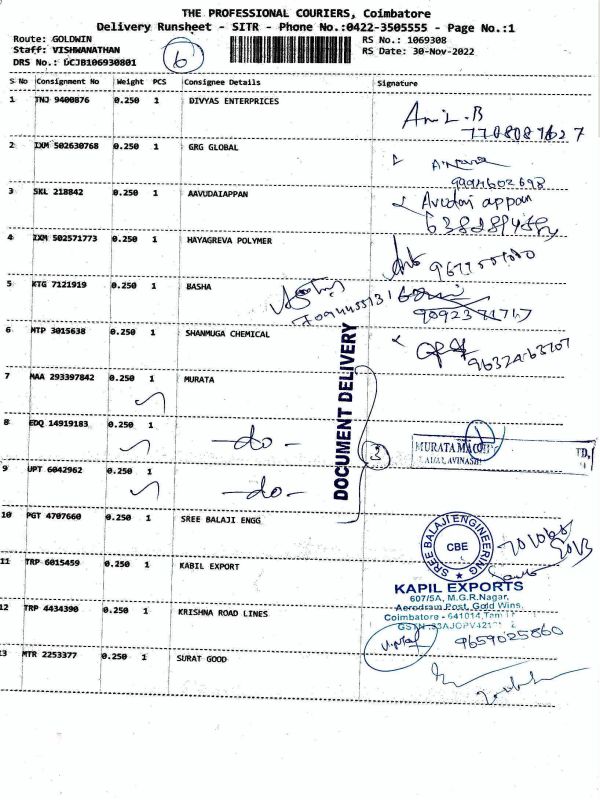 THE PROFESSIONAL COURIERS, Coimbatore
Delivery Runsheet - SITR - Phone No.:0422-3505555 - Page No.:1
Route: GOLDWIN
Staff: VISHWANATHAN
DRS No.: DCJB106930801
6
RS No.: 1069308
RS Date: 30-Nov-2022
S No Consignment No Weight PCS Consignee Details Signature
1 TNJ 9400876 0.250 1 DIVYAS ENTERPRICES
2 IXM 502630768 0.250 1 GRG GLOBAL
3 SKL 218842 0.250 1 AAVUDAIAPPAN Avudai appan
4 IXM 502571773 0.250 1 HAYAGREVA POLYMER
5 KTG 7121919 0.250 1 BASHA
6 MTP 3015638 0.250 1 SHANMUGA CHEMICAL
DOCUMENT DELIVERY
7 MAA 293397842 0.250 1 MURATA
8 EDQ 14919183 0.250 1 -do-
3
MURATA
9 UPT 6042962 0.250 1 -do-
10 PGT 4707660 0.250 1 SREE BALAJI ENGG
SREE BALAJI ENGINEERING
CBE
11 TRP 6015459 0.250 1 KABIL EXPORT
KAPIL EXPORTS
607/5A, M.G.R.Nagar,
Aerodram Post, Gold Wins,
Coimbatore - 641014,
12 TRP 4434390 0.250 1 KRISHNA ROAD LINES
9659025860
13 MTR 2253377 0.250 1 SURAT GOOD